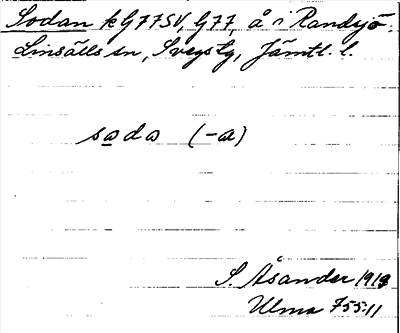 Sodan kG77SV, G77, å i Randsjö.
Linsälls sn, Svegs tg, Jämtl. l.
soda (-a)
S. Åsander 1918
Ulma 755:11